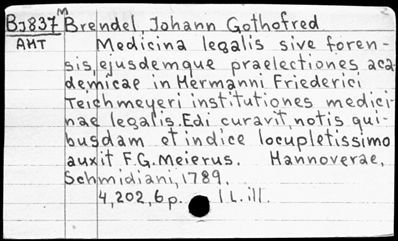 BJ837 M Brendel Johann Gothofred
AMT Medicina legalis sive foren-
sis, ejusdemque praelectiones aca-
demicae in Hermanni Friederici
Teichmeyeri institutiones medici-
nae legalis. Edi curavit, notis qui-
busdam et indice locupletissimo
auxit F.G. Meierus. Hannoverae,
Schmidiani, 1789.
4,202,6 p. 1 L. ill.